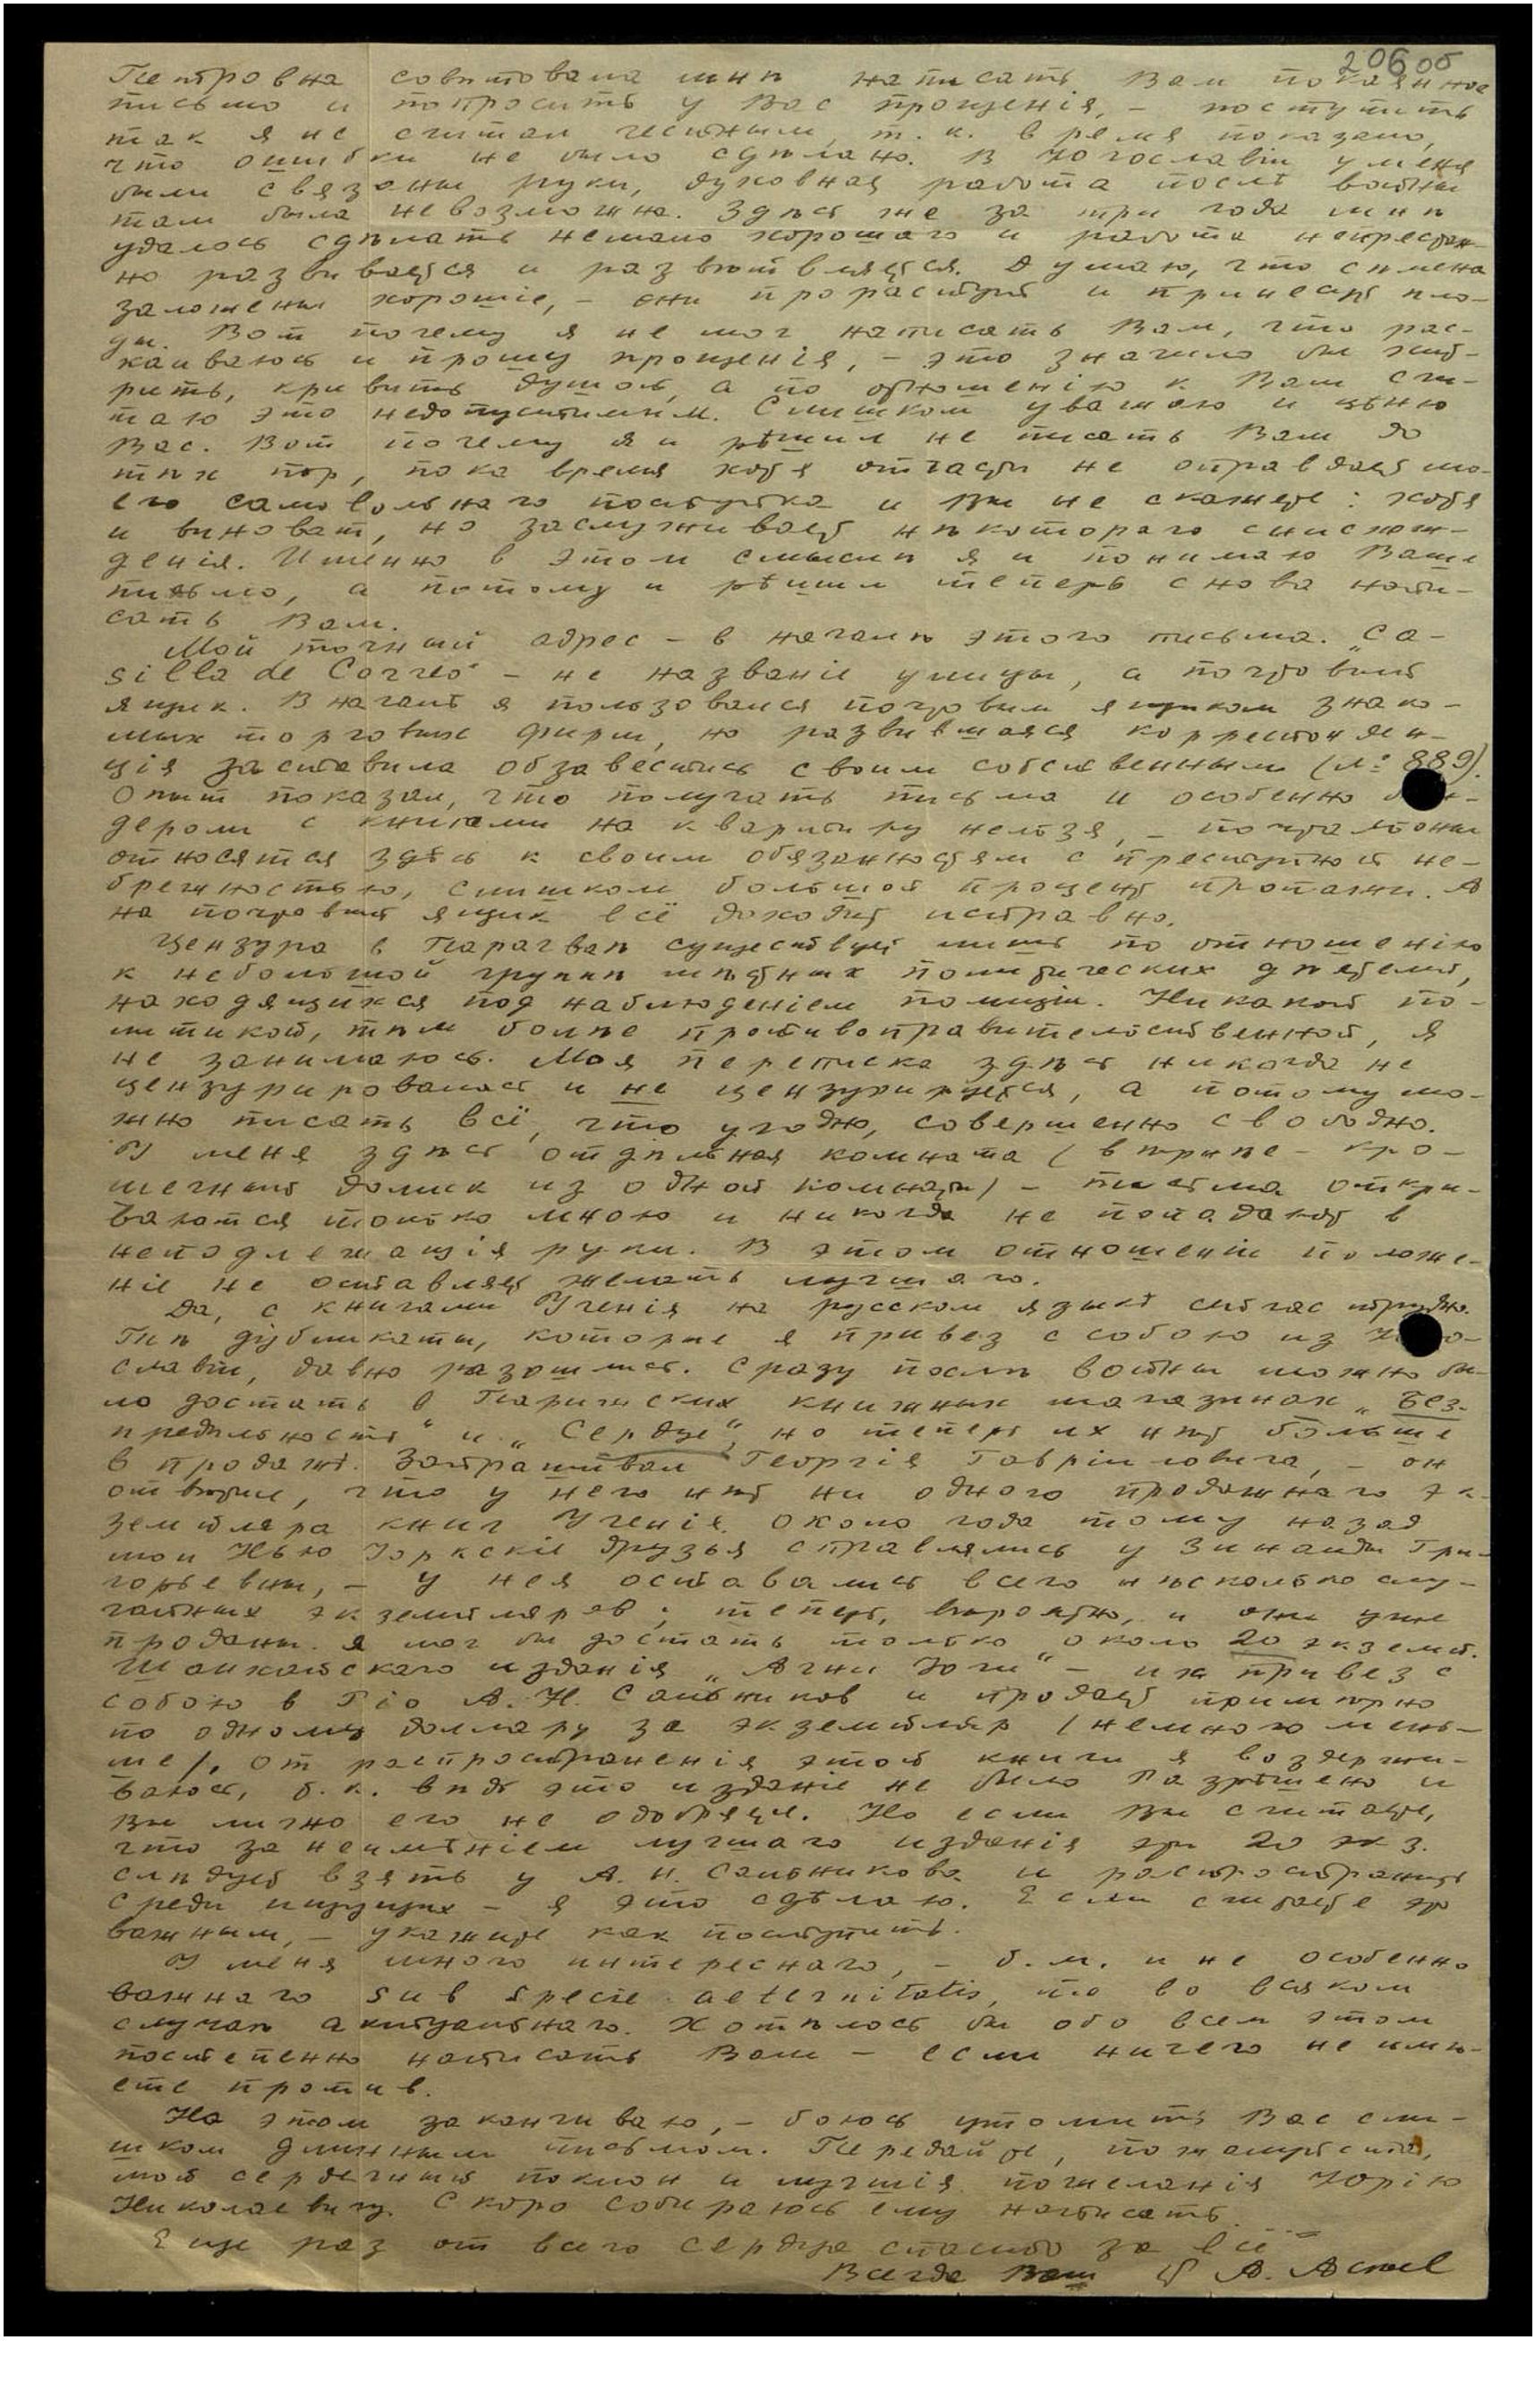 206об
Петровна совѣтовала мнѣ написать Вам покаянное
письмо и попросить у Вас прощенія, – поступить
так я не считал честным, т. к. время показало,
что ошибки не было сдѣлано. В Югославіи у меня
были связаны руки, духовная работа послѣ войны
там была невозможна. Здѣсь же за три года мнѣ
удалось сдѣлать немало хорошаго и работа непрестан-
но развивается и развѣтвляется. Думаю, что сѣмена
заложены хорошіе, – они прорастут и принесут пло-
ды. Вот почему я не мог написать Вам, что рас-
каиваюсь и прошу прощенія, – это значило бы хит-
рить, кривить душой, а по отношенію к Вам счи-
таю это недопустимым. Слишком уважаю и цѣню
Вас. Вот почему я и рѣшил не писать Вам до
тѣх пор, пока время хотя отчасти не оправдает мо-
его самовольнаго поступка и Вы не скажете: хотя
и виноват, но заслуживает нѣкотораго снисхож-
денія. Именно в этом смыслѣ я и понимаю Ваше
письмо, а потому и рѣшил теперь снова напи-
сать Вам.
Мой точный адрес – в началѣ этого письма. „Ca-
silla de Correo" – не названіе улицы, а почтовый
ящик. В началѣ я пользовался почтовым ящиком знако-
мых торговых фирм, но развившаяся корреспонден-
ція заставила обзавестись своим собственным (№ 889).
Опыт показал, что получать письма и особенно
дероли с книгами на квартиру нельзя, – почтальоны
относятся здѣсь к своим обязанностям с преступной не-
брежностью, слишком большой процент пропажи. А
на почтовый ящик всё доходит исправно.
Цензура в Парагваѣ существует лишь по отношенію
к небольшой группѣ мѣстных политических дѣятелей,
находящихся под наблюденіем полиціи. Никакой по-
литикой, тѣм болѣе противоправительственной, я
не занимаюсь. Моя переписка здѣсь никогда не
цензурировалась и не цензурируется, а потому мо-
жно писать всё, что угодно, совершенно свободно.
У меня здѣсь отдѣльная комната (вѣрнѣе – кро-
шечный домик из одной комнаты) – письма откры-
ваются только мною и никогда не попадают в
неподлежащія руки. В этом отношеніи положе-
ніе не оставляет желать лучшаго.
Да, с книгами Ученія на русском языкѣ сейчас трудно.
Тѣ дубликаты, которые я привез с собою из
славіи, давно разошлись. Сразу послѣ войны можно бы-
ло достать в Парижских книжных магазинах „Без-
предѣльность" и „Сердце", но теперь их нѣт больше
в продажѣ. Запрашивал Георгія Гавріиловича, – он
отвѣтил, что у него нѣт ни одного продажнаго эк-
земпляра книг Ученія. Около года тому назад
мои Нью Йоркскіе друзья справлялись у Зинаиды Гри-
горьевны, – у нея оставались всего нѣсколько слу-
чайных экземпляров; теперь, вѣроятно, и они уже
проданы. Я мог бы достать только около 20 экземп.
Шанхайскаго изданія „Агни Йоги" – их привез с
собою в Ріо А. Н. Сальников и продает примѣрно
по одному доллару за экземпляр (немного мень-
ше). От распространенія этой книги я воздержи-
ваюсь, т. к. вѣдь это изданіе не было разрѣшено и
Вы лично его не одобряете. Но если Вы считаете,
что за неимѣніем лучшаго изданія эти 20 экз.
слѣдует взять у А. Н. Сальникова и распространить
среди ищущих – я это сдѣлаю. Если считаете это
важным, – укажите как поступить.
У меня много интереснаго, – б. м. и не особенно
важнаго sub specie aeternitatis, но во всяком
случаѣ актуальнаго. Хотѣлось бы обо всем этом
постепенно написать Вам – если ничего не имѣ-
ете против.
На этом заканчиваю, – боюсь утомить Вас сли-
шком длинным письмом. Передайте, пожалуйста,
мой сердечный поклон и лучшія пожеланія Юрію
Николаевичу. Скоро собираюсь ему написать.
Еще раз от всего сердца спасибо за всё
Всегда Ваш А. Асеев